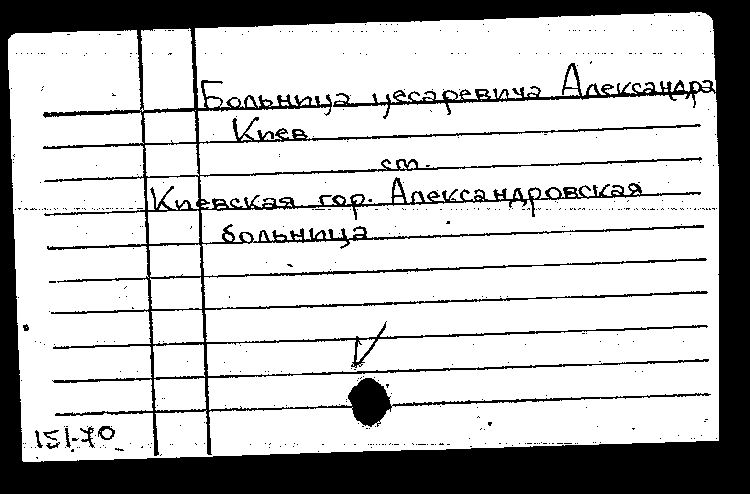 Больница цесаревича Александра
Киев
см.
Киевская гор. Александровская
больница
151-70